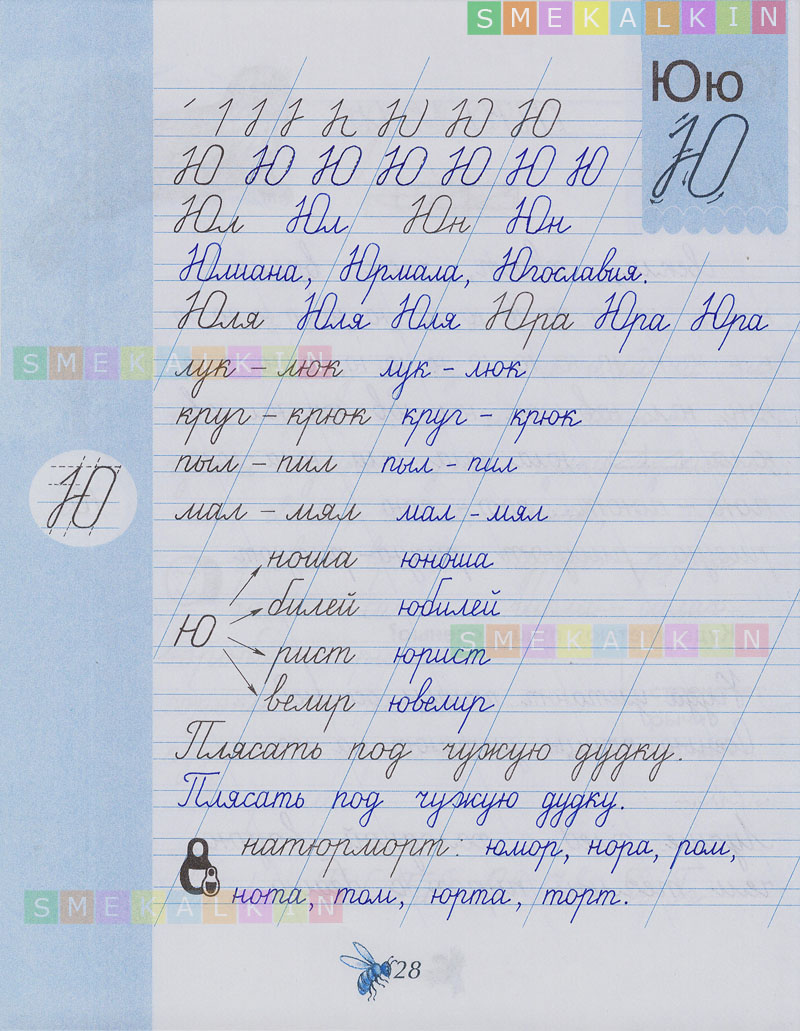 SMEKALKIN
Юю
Ю
Ю
Ю Ю Ю Ю Ю Ю Ю
Юл Юл Юн Юн
Юлиана, Юрмала, Югославия.
Юля Юля Юля Юра Юра Юра
SMEKALKIN
лук – люк лук – люк
круг – крюк круг – крюк
пыл – пил пыл – пил
Ю
мал – мял мал – мял
ноша юноша
билей юбилей
Ю
SMEKALKIN
рист юрист
велир ювелир
Плясать под чужую дудку.
Плясать под чужую дудку.
натюрморт: юмор, нора, ром,
нота, том, юрта, торт.
SMEKALKIN
28